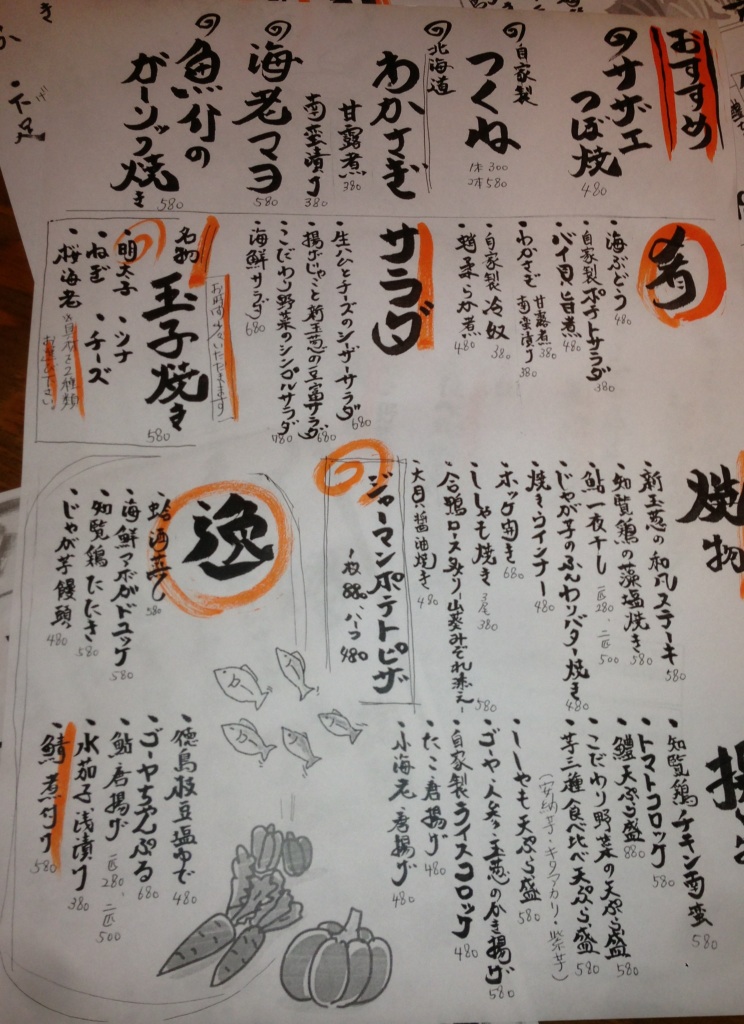 おすすめ
サザエ
つぼ焼
480
自家製
つくね
1本 300
2本 580
北海道
わかさぎ
甘露煮
380
南蛮漬け
380
海老マヨ
580
魚介の
ガーリック焼き
580
肴
・海ぶどう 480
・自家製ポテトサラダ 380
・バイ貝旨煮 480
・わかさぎ 甘露煮 380
南蛮漬け 380
・自家製冷奴 380
・蛸柔らか煮 480
サラダ
・生ハムとチーズのシーザーサラダ 680
・揚げじゃこと新玉葱の豆富サラダ 680
・こだわり野菜のシンプルサラダ 480
・海鮮サラダ 680
お時間少々いただきます
名物
玉子焼き
580
・明太子 ・ツナ
・ねぎ ・チーズ
・桜海老
焼物
・新玉葱の和風ステーキ 580
・知覧鶏の藻塩焼き 580
・鮎一夜干し 一匹 280、二匹 500
・じゃが芋のふんわりバター焼き 480
・焼きウインナー 480
・ホッケ開き 680
・ししゃも焼き 3尾 380
・合鴨ロース炙り 山葵みぞれ添え 580
・大貝醤油焼き 480
ジャーマンポテトピザ
一枚 880、ハーフ 480
逸
・蛤酒蒸し 580
・海鮮アボガドユッケ 580
・知覧鶏たたき 580
・じゃが芋饅頭 480
揚
・知覧鶏チキン南蛮 580
・トマトコロッケ 580
・鱧天ぷら盛 880
・こだわり野菜の天ぷら盛 580
・芋三種食べ比べ天ぷら盛 580
(安納芋・キタアカリ・紫芋)
・ししゃも天ぷら盛 580
・ゴーヤ・人参・玉葱のかき揚げ 580
・自家製ライスコロッケ 480
・たこ唐揚げ 480
・小海老唐揚げ 480
・徳島枝豆塩ゆで 480
・ゴーヤちゃんぷる 680
・鮎唐揚げ 一匹 280、二匹 500
・水茄子浅漬け 380
・鯖煮付け 580